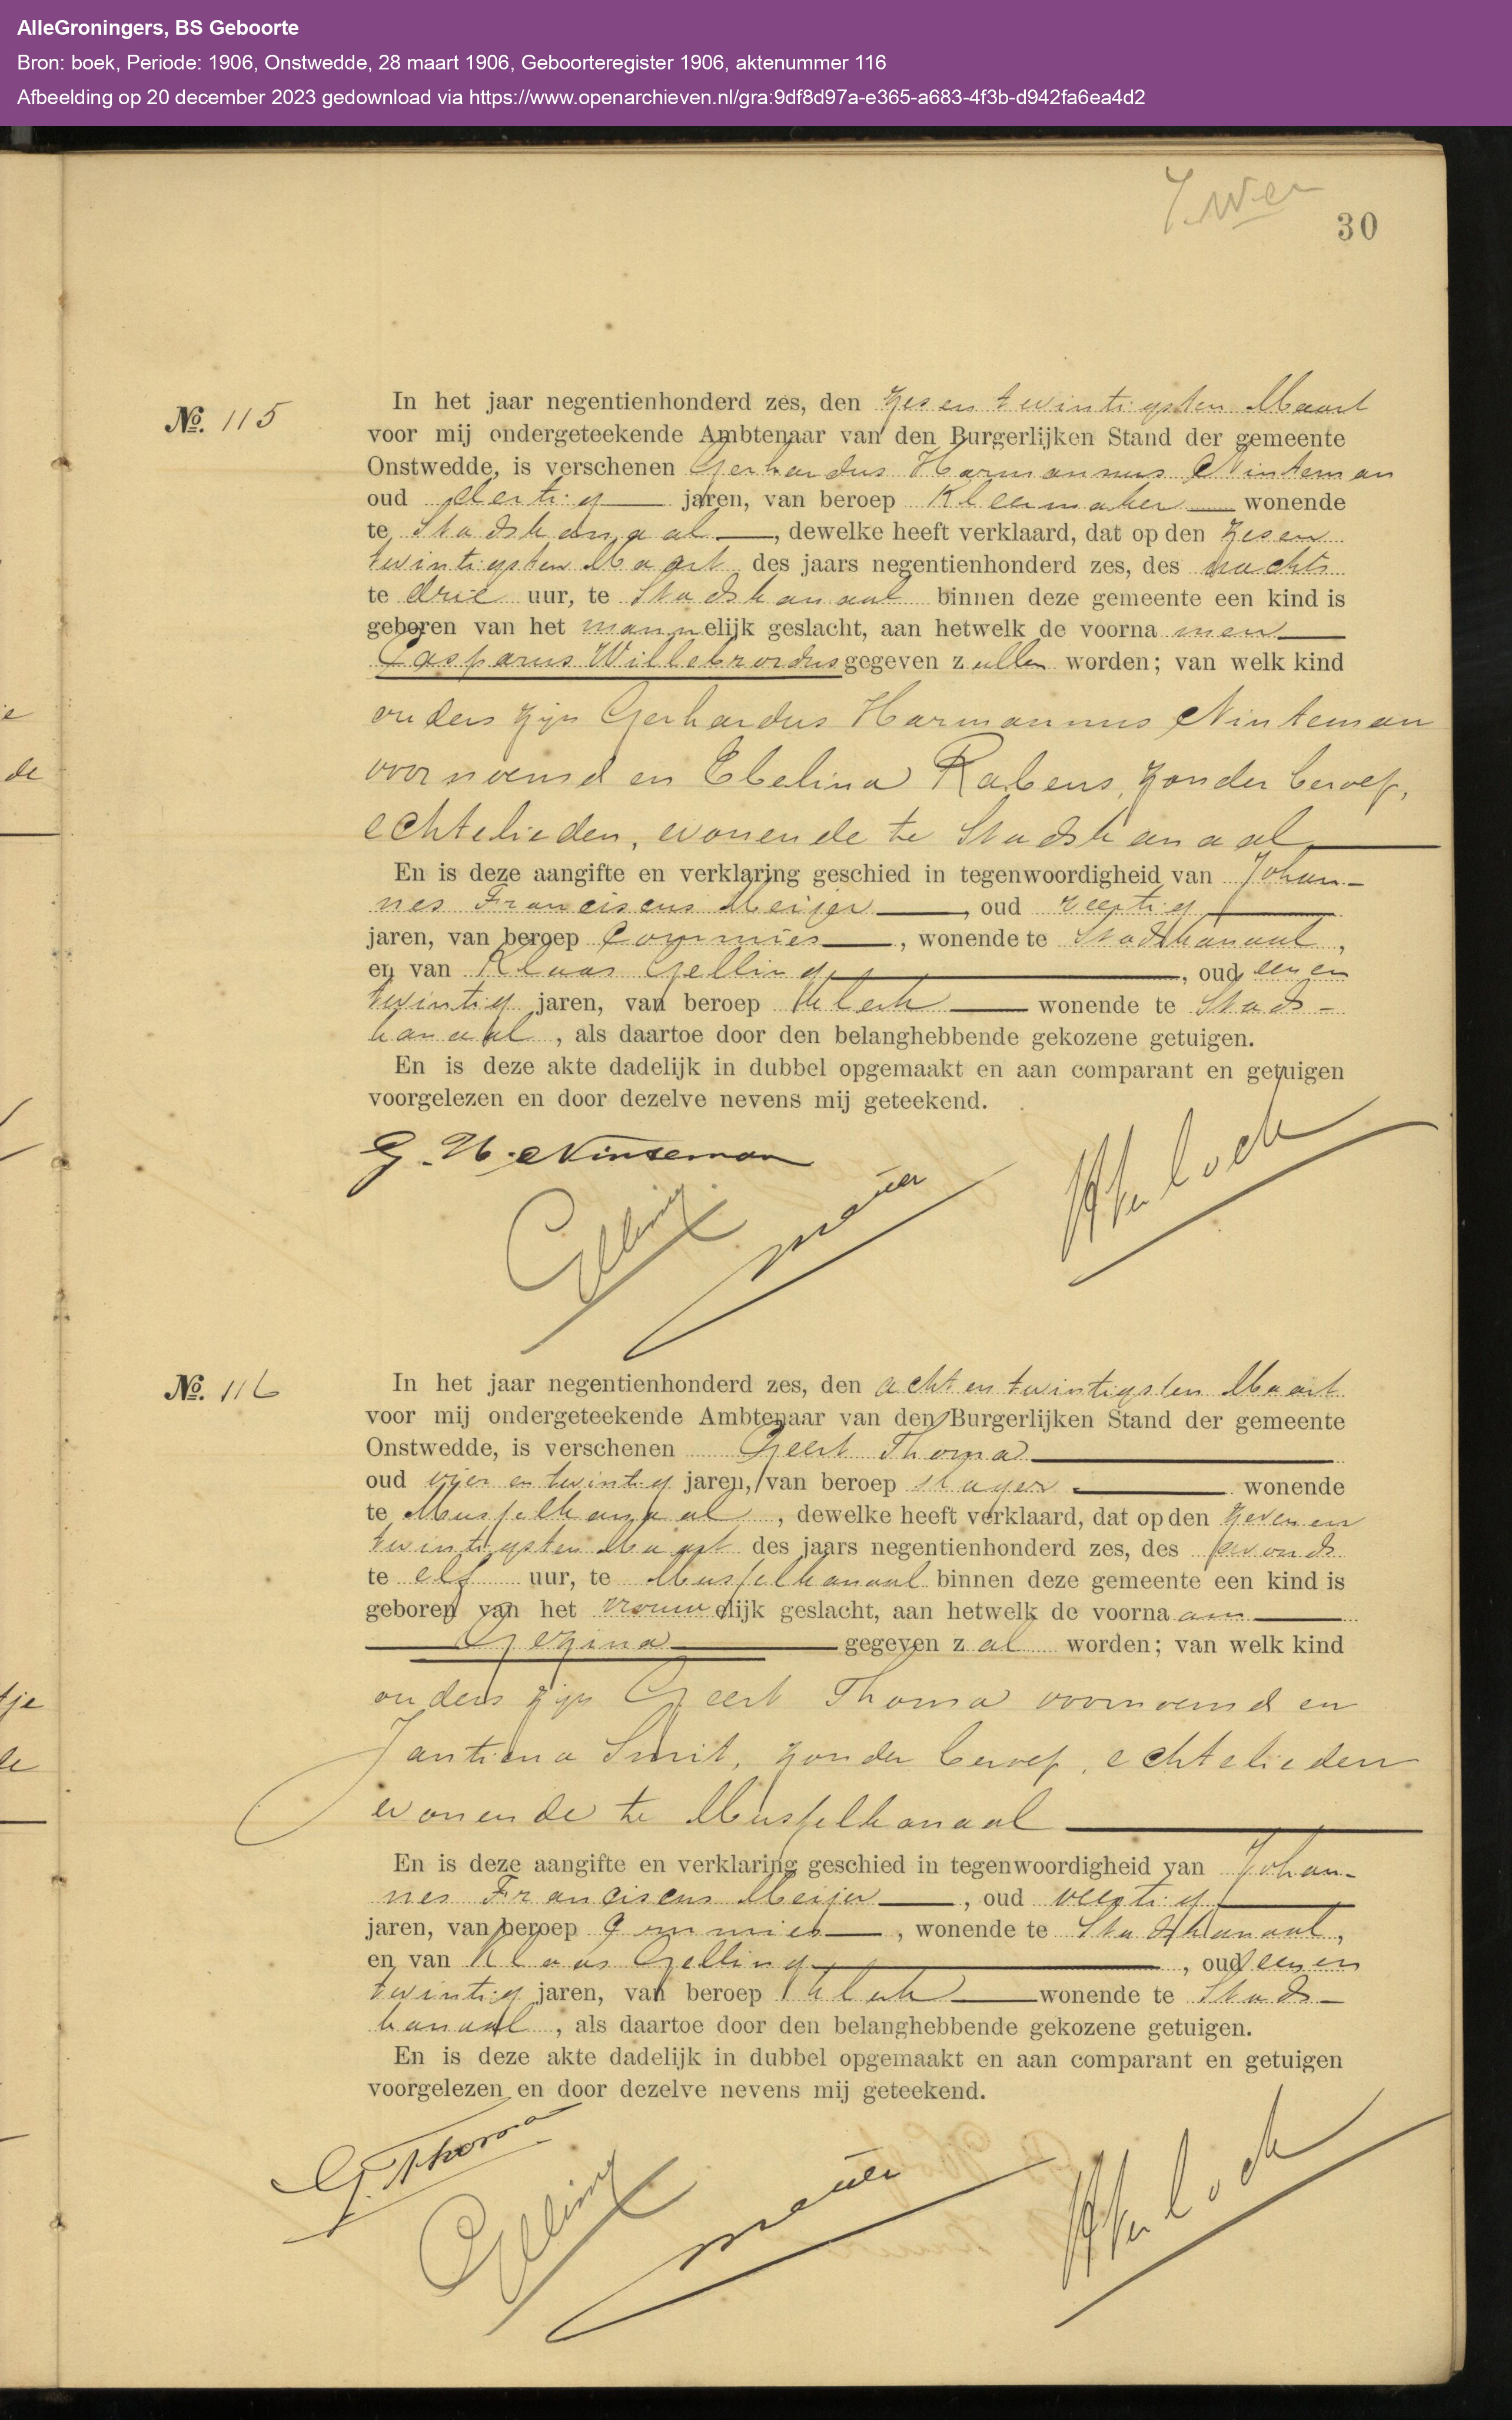 AlleGroningers, BS Geboorte
Bron: boek, Periode: 1906, Onstwedde, 28 maart 1906, Geboorteregister 1906, aktenummer 116
Afbeelding op 20 december 2023 gedownload via https://www.openarchieven.nl/gra:9df8d97a-e365-a683-4f3b-d942fa6ea4d2
30
No. 115
In het jaar negentienhonderd zes, den zesentwintigsten Maart
voor mij ondergeteekende Ambtenaar van den Burgerlijken Stand der gemeente
Onstwedde, is verschenen Gerhardus Harmannus Ninteman
oud dertig jaren, van beroep Kleermaker wonende
te Stadskanaal, dewelke heeft verklaard, dat op den zesen
twintigsten Maart des jaars negentienhonderd zes, des nachts
te drie uur, te Stadskanaal binnen deze gemeente een kind is
geboren van het mannelijk geslacht, aan hetwelk de voornamen
Casparus Willebrordus gegeven zullen worden; van welk kind
ouders zijn Gerhardus Harmannus Ninteman
voornoemd en Ebelina Rabens, zonder beroep,
echtelieden, wonende te Stadskanaal
En is deze aangifte en verklaring geschied in tegenwoordigheid van Johan-
nes Franciscus Meijer, oud veertig
jaren, van beroep Commies, wonende te Stadskanaal,
en van Klaas Gelling, oud eenen
twintig jaren, van beroep Klerk wonende te Stads-
kanaal, als daartoe door den belanghebbende gekozene getuigen.
En is deze akte dadelijk in dubbel opgemaakt en aan comparant en getuigen
voorgelezen en door dezelve nevens mij geteekend.
G. H. Ninteman
Gelling
Meijer
No. 116
In het jaar negentienhonderd zes, den achtentwintigsten Maart
voor mij ondergeteekende Ambtenaar van den Burgerlijken Stand der gemeente
Onstwedde, is verschenen Geert Thoma
oud vier en twintig jaren, van beroep slager wonende
te Musselkanaal, dewelke heeft verklaard, dat op den zevenen
twintigsten Maart des jaars negentienhonderd zes, des avonds
te elf uur, te Musselkanaal binnen deze gemeente een kind is
geboren van het vrouwelijk geslacht, aan hetwelk de voornaam
Gezina gegeven zal worden; van welk kind
ouders zijn Geert Thoma voornoemd en
Jantiena Smit, zonder beroep, echtelieden
wonende te Musselkanaal
En is deze aangifte en verklaring geschied in tegenwoordigheid van Johan-
nes Franciscus Meijer, oud veertig
jaren, van beroep Commies, wonende te Stadskanaal,
en van Klaas Gelling, oud eenen
twintig jaren, van beroep Klerk wonende te Stads-
kanaal, als daartoe door den belanghebbende gekozene getuigen.
En is deze akte dadelijk in dubbel opgemaakt en aan comparant en getuigen
voorgelezen en door dezelve nevens mij geteekend.
G. Thoma
Gelling
Meijer